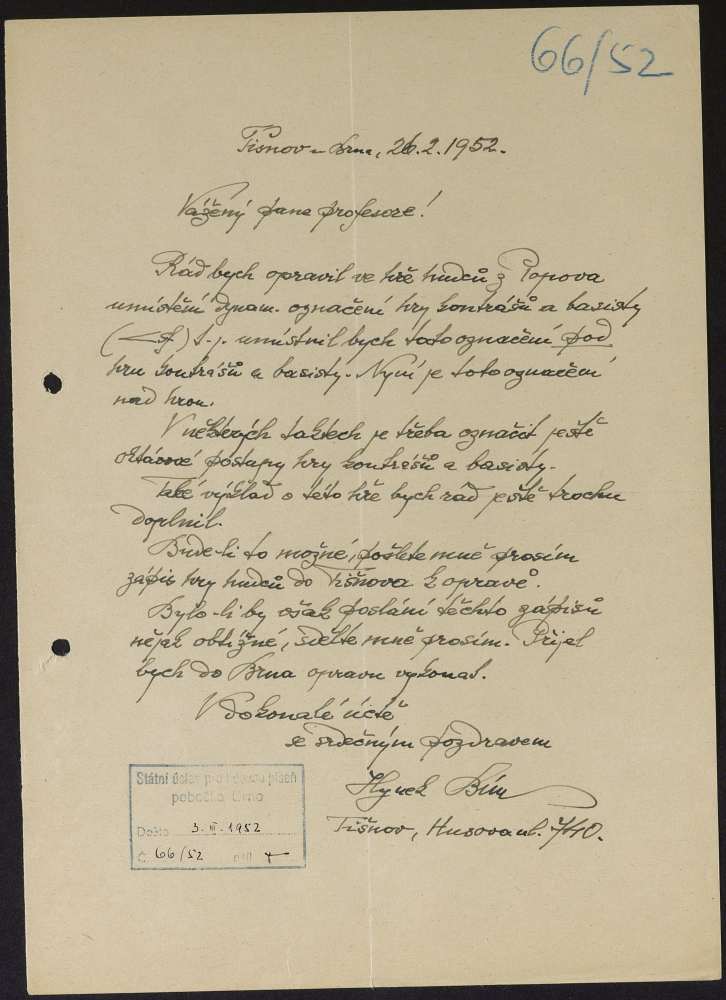 66/52
Tišnov u Brna, 26.2.1952.
Vážený pane profesore!
Rád bych opravil ve hře hudců z Popova
umístění dynam. označení hry kontrášů a basisty
(< sf) t.j. umístnil bych toto označení pod
hru kontrášů a basisty. Nyní je toto označení
nad hrou.
V některých taktech je třeba označit ještě
oktávové postupy hry kontrášů a basisty.
Také výklad o této hře bych rád ještě trochu
doplnil.
Bude-li to možné, pošlete mně prosím
zápis hry hudců do Tišnova k opravě.
Bylo-li by však poslání těchto zápisů
nějak obtížné, sdělte mně prosím. Přijel
bych do Brna opravu vykonat.
V dokonalé úctě
se srdečným pozdravem
Hynek Bím
Tišnov, Husova ul. 740.
Státní ústav pro lidovou píseň
pobočka Brno
Došlo 3. III. 1952
Č. 66/52 příl.